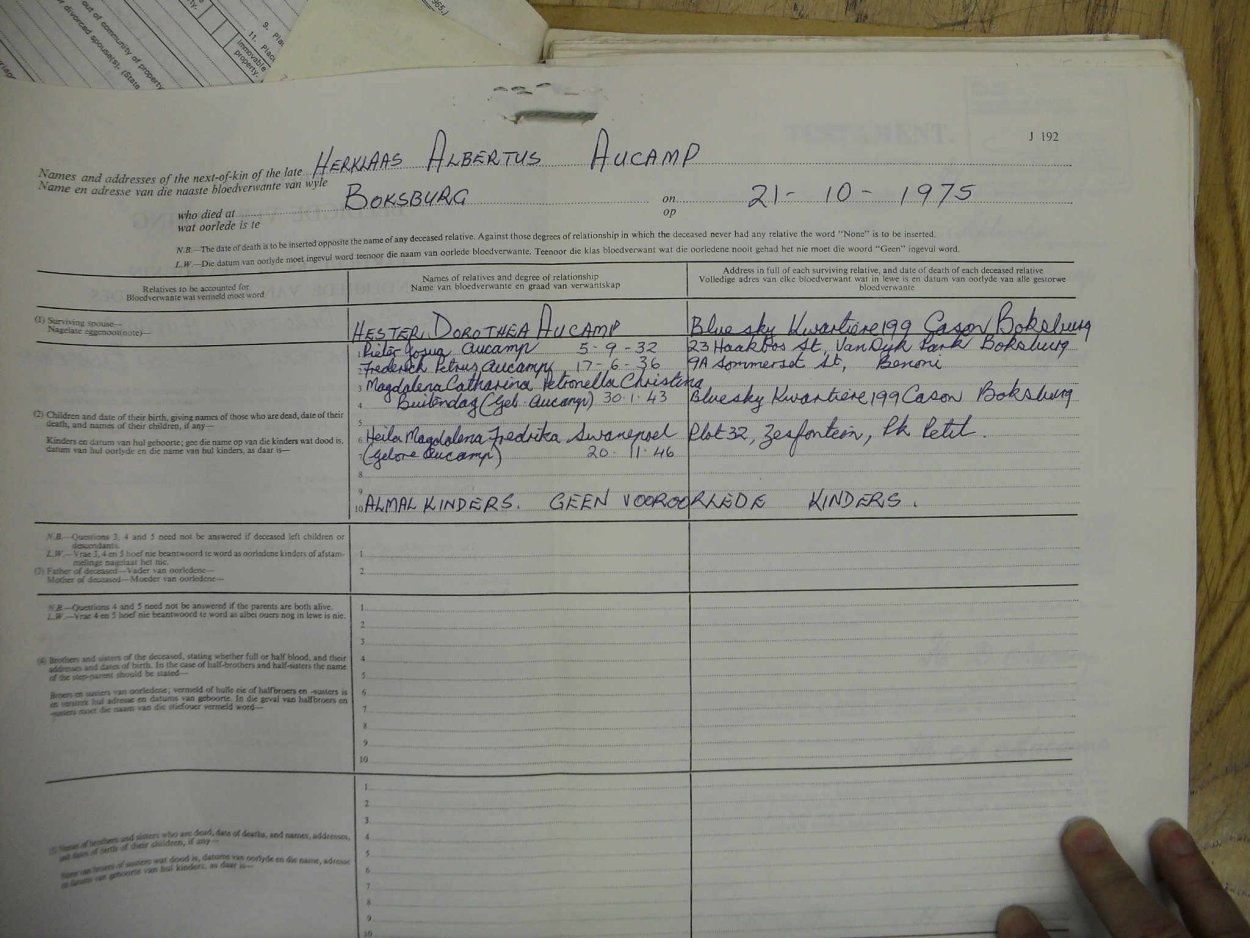 965.)
9. Pla
11. Place
Immovable
property.
out of community of property
divorced spouse(s). (State
J 192
Names and addresses of the next-of-kin of the late HERKLAAS ALBERTUS AUCAMP
Name en adresse van die naaste bloedverwante van wyle
who died at BOKSBURG on 21-10-1975
wat oorlede is te op
N.B.—The date of death is to be inserted opposite the name of any deceased relative. Against those degrees of relationship in which the deceased never had any relative the word "None" is to be inserted.
L.W.—Die datum van oorlyde moet ingevul word teenoor die naam van oorlede bloedverwante. Teenoor die klas bloedverwant wat die oorledene nooit gehad het nie moet die woord "Geen" ingevul word.
Relatives to be accounted for
Bloedverwante wat vermeld moet word
Names of relatives and degree of relationship
Name van bloedverwante en graad van verwantskap
Address in full of each surviving relative, and date of death of each deceased relative
Volledige adres van elke bloedverwant wat in lewe is en datum van oorlyde van alle gestorwe
bloedverwante
(1) Surviving spouse—
Nagelate eggenoot(note)—
HESTER DOROTHEA AUCAMP Bluesky Kwartiere 199 Cason Boksburg
1 Pieter Josua Aucamp 5-9-32 23 Haakbos St, Van Dyk Park Boksburg
2 Frederick Petrus Aucamp 17-6-36 9A Sommerset St, Benoni
3 Magdalena Catharina Petronella Christina
4 Buitendag (Geb. Aucamp) 30·1·43 Bluesky Kwartiere 199 Cason Boksburg
(2) Children and date of their birth, giving names of those who are dead, date of their
death, and names of their children, if any—
Kinders en datum van hul geboorte; gee die name op van die kinders wat dood is,
datum van hul oorlyde en die name van hul kinders, as daar is—
5
6 Heila Magdalena Fredrika Swanepoel Plot 32, Zesfontein, Pk Petit.
7 (gebore Aucamp) 20·11·46
8
9
10 ALMAL KINDERS. GEEN VOOROORLEDE KINDERS.
N.B.—Questions 3, 4 and 5 need not be answered if deceased left children or
descendants.
L.W.—Vrae 3, 4 en 5 hoef nie beantwoord te word as oorledene kinders of afstam-
melinge nagelaat het nie.
(3) Father of deceased—Vader van oorledene—
Mother of deceased—Moeder van oorledene—
1
2
N.B.—Questions 4 and 5 need not be answered if the parents are both alive.
L.W.—Vrae 4 en 5 hoef nie beantwoord te word as albei ouers nog in lewe is nie.
(4) Brothers and sisters of the deceased, stating whether full or half blood, and their
addresses and dates of birth. In the case of half-brothers and half-sisters the name
of the step-parent should be stated—
Broers en susters van oorledene; vermeld of hulle eie of halfbroers en -susters is
en verstrek hul adresse en datums van geboorte. In die geval van halfbroers en
-susters moet die naam van die stiefouer vermeld word—
1
2
3
4
5
6
7
8
9
10
(5) Names of brothers and sisters who are dead, date of deaths, and names, addresses,
and dates of birth of their children, if any—
Name van broers of susters wat dood is, datums van oorlyde en die name, adresse
en datums van geboorte van hul kinders, as daar is—
1
2
3
4
5
6
7
8
9
10